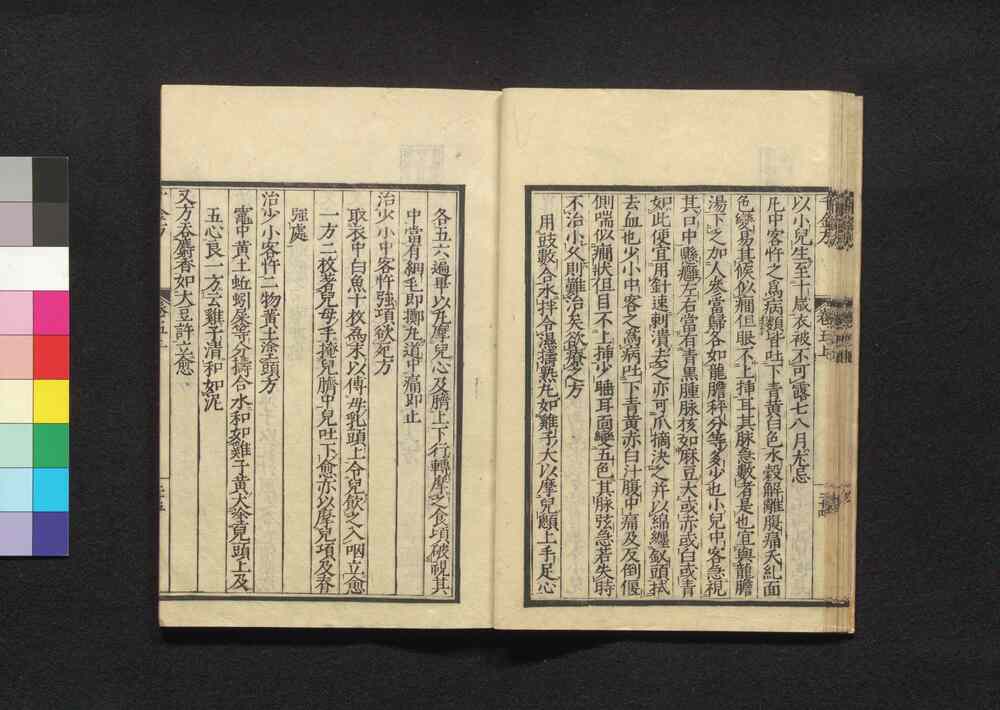 以小兒生至十歲衣被不可露七八月尤忌
凡中客忤之爲病類皆吐下青黃白色水穀解離腹痛夭糺面
色變易其候似癇但眼不上插耳其脉急數者是也宜與龍膽
湯下之加人參當歸各如龍膽秤分等多少也小兒中客急視
其口中懸癰左右當有青黑腫脉核如麻豆大或赤或白或青
如此便宜用針速刺潰去之亦可爪摘決之并以綿纏釵頭拭
去血也少小中客之爲病吐下青黃赤白汁腹中痛及反倒偃
側喘似癇狀但目不上插少睡耳面變五色其脉弦急若失時
不治小久則難治矣欲療之方
用豉數合水拌令濕擣熟丸如雞子大以摩兒顖上手足心
各五六遍畢以丸摩兒心及臍上下行轉摩之食頃破視其
中當有細毛即擲丸道中痛即止
治少小中客忤強項欲死方
取衣中白魚十枚爲末以傅母乳頭上令兒飲之入咽立愈
一方二枚著兒母手掩兒臍中兒吐下愈亦以摩兒項及脊
強處
治少小客忤二物黃土塗頭方
竈中黃土蚯蚓屎等分擣合水和如雞子黃大塗兒頭上及
五心良一方云雞子清和如泥
又方吞麝香如大豆許立愈